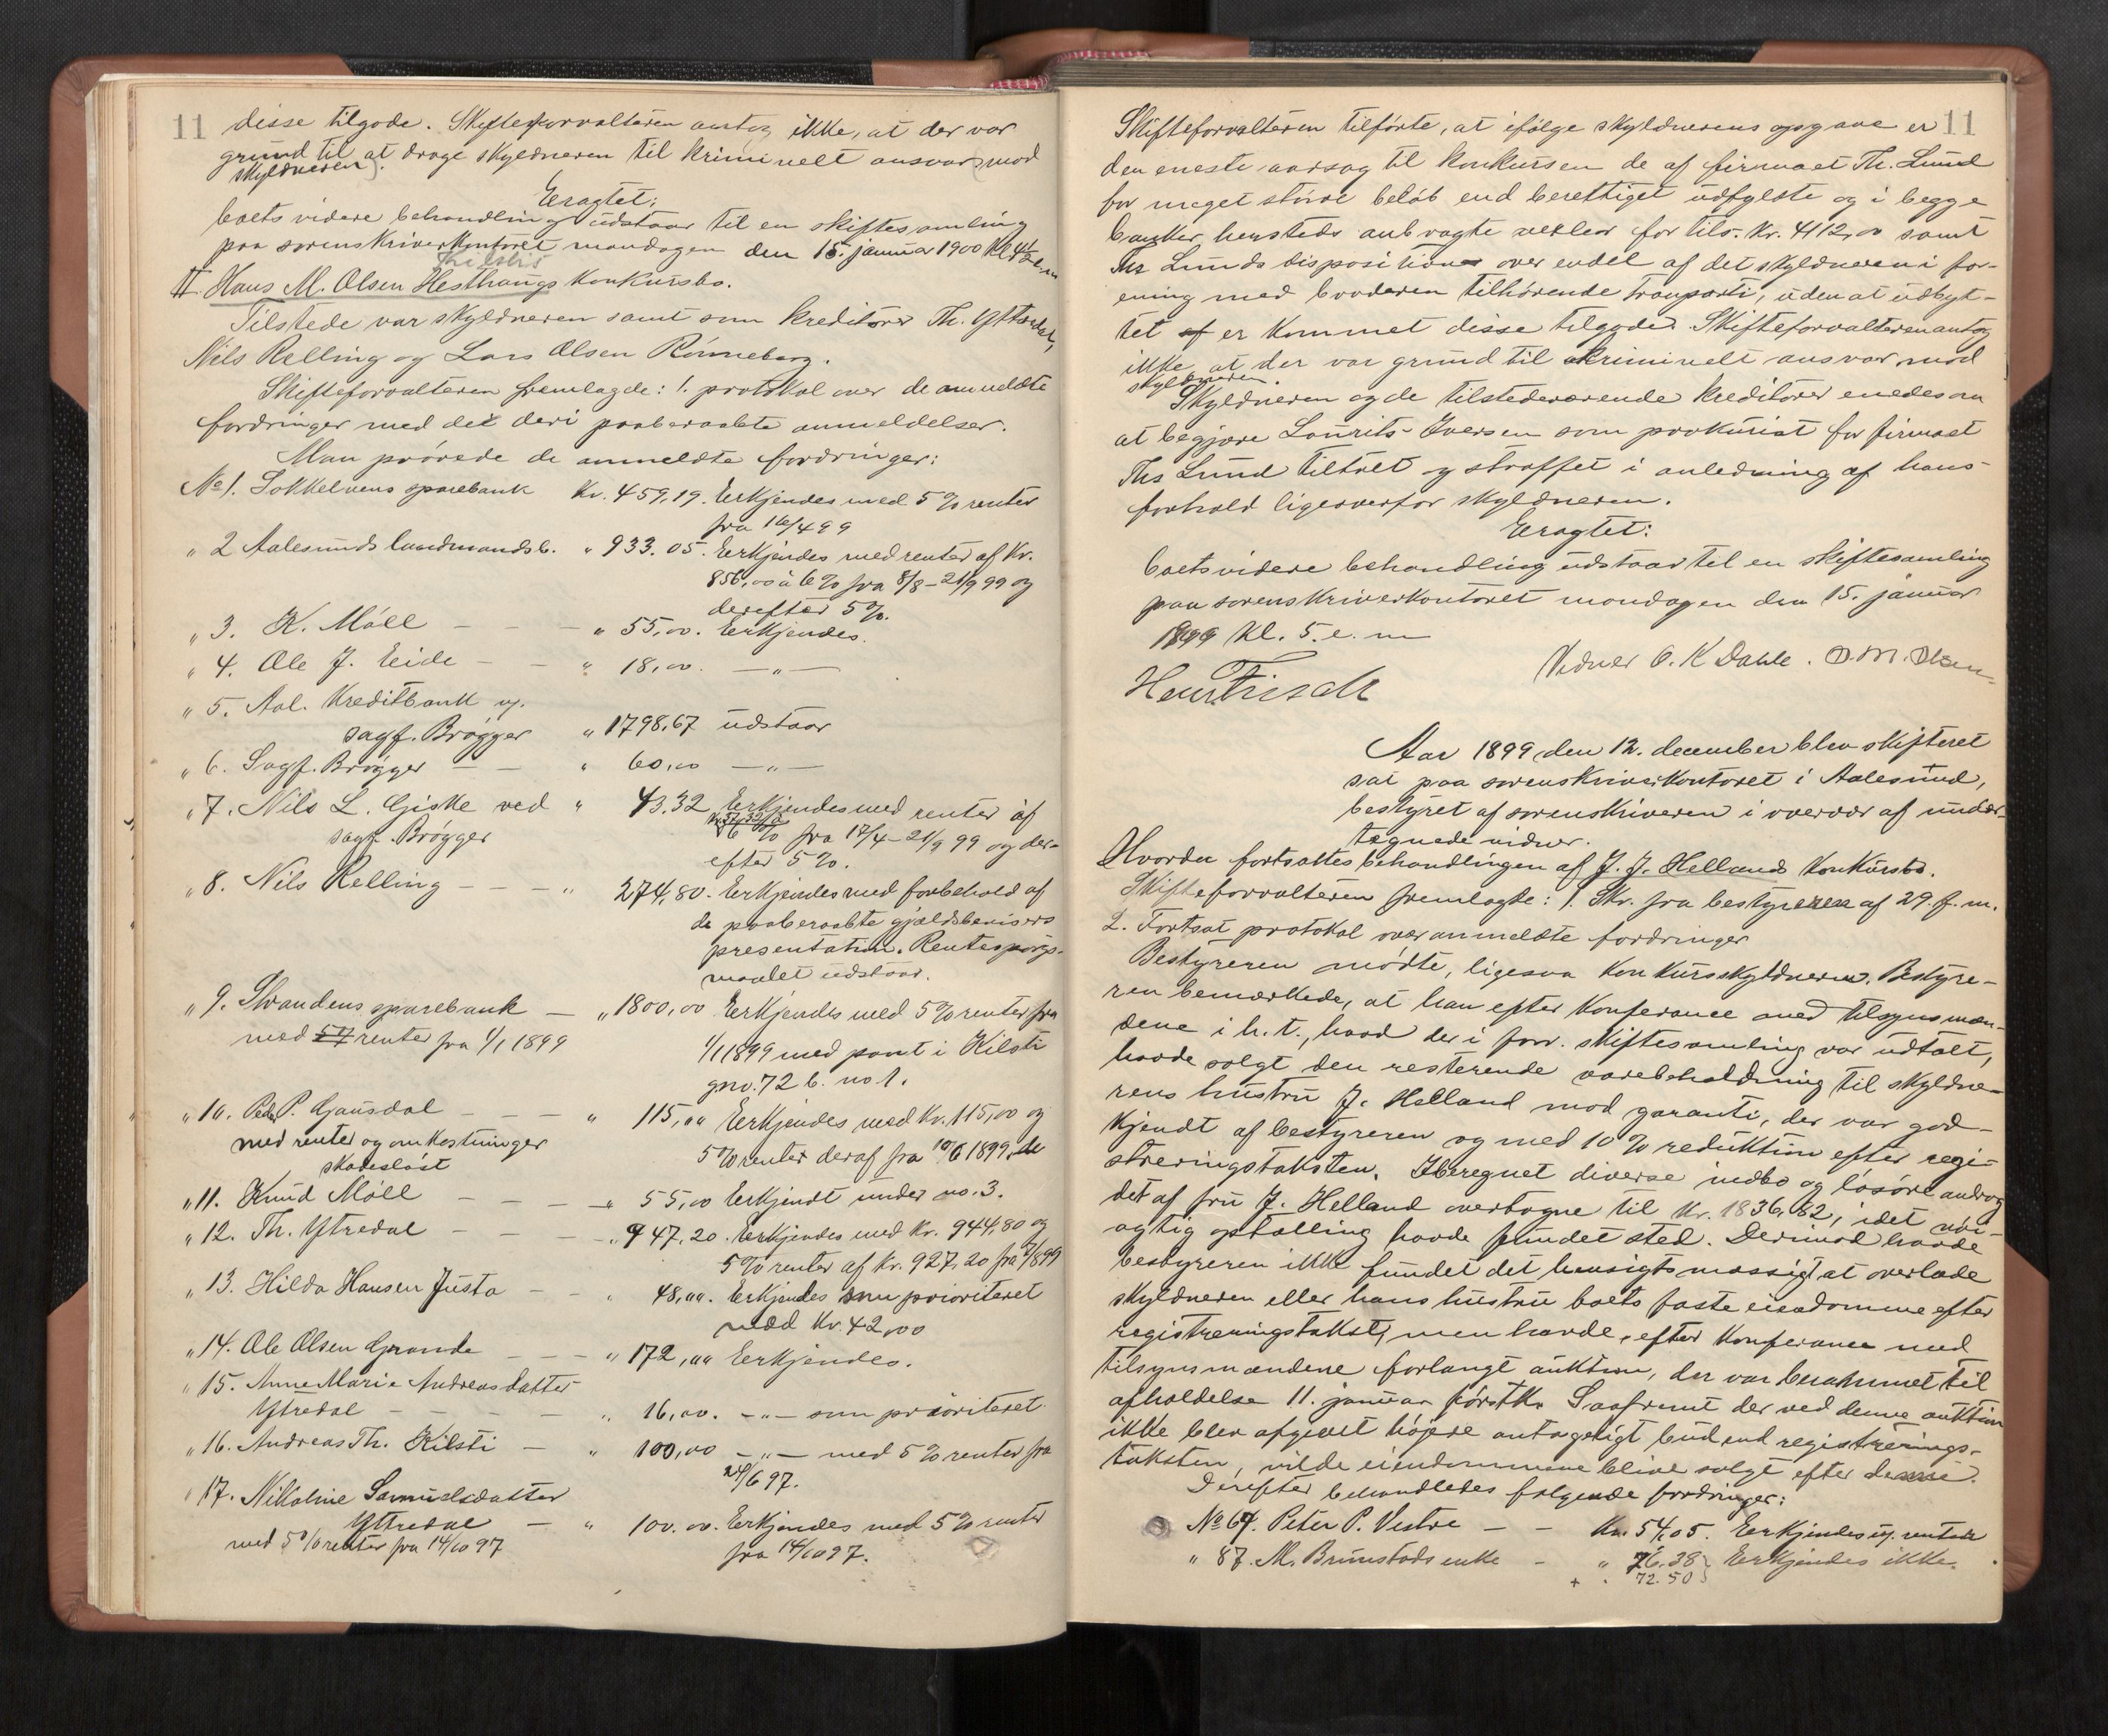 11
disse tilgode. Skifteforvalteren antog ikke, at der var
grund til at drage skyldneren til kriminelt ansvar mod
skyldneren.
Eragtet:
boets videre behandling udstaar til en skiftesamling
paa sorenskriverkontoret mandagen den 15. januar 1900 kl. 4½ e.m
Kilstis
II. Hans M. Olsen Hesthaugs konkursbo.
Tilstede var skyldneren samt som kreditorer Th. Yttredal,
Nils Relling og Lars Olsen Rønneberg.
Skifteforvalteren fremlagde: 1. protokol over de anmeldte
fordringer med de deri paaberaabte anmeldelser.
Man prøvede de anmeldte fordringer:
No 1. Søkkelvens sparebank Kr. 459,19. Erkjendes med 5 % renter
fra 16/4 99
" 2 Aalesunds landmandsb. " 933.05. Erkjendes med renter af Kr.
856,00 à 6 % fra 8/8 - 21/9 99 og
derefter 5 %.
" 3. K. Møll — — " 55,00. Erkjendes.
" 4. Ole J. Eide — — " 18,00. — " —
" 5. Aal. Kreditbank v.
sagf. Brøgger " 1798,67 udstaar
" 6. Sagf. Brøgger — — " 60,00 — " —
" 7. Nils L. Giske ved " 43.32 Erkjendes med renter af
6 % fra 17/4 - 21/9 99 og der-
sagf. Brøgger
efter 5 %.
" 8. Nils Relling — — — " 274,80. Erkjendes med forbehold af
de paaberaabte gjældsbevisers
presentation. Rentespørgs-
maalet udstaar.
" 9. Strandens sparebank — " 1800,00 Erkjendes med 5 % renter fra
med renter fra 1/1 1899
1/1 1899 med pant i Kilsti
gno. 72 b. no 1.
" 10. Peder P. Gausdal — — — " 115,00 Erkjendes med Kr. 115,00 og
med renter og omkostninger
5 % renter deraf fra 10/6 1899
skadesløst
" 11. Knud Møll — — — " 55,00 Erkjendt under no. 3.
" 12. Th. Ytredal — — — " 947,20. Erkjendes med Kr. 944,80 og
5 % renter af Kr. 927,20 fra 7/8 99
" 13. Hilda Hansen Justa — — " 48,00. Erkjendes som prioriteret
med Kr. 42,00
" 14. Ole Olsen Grande — — — " 172,00 Erkjendes.
" 15. Anne Marie Andreasdatter
Ytredal — — — " 16,00. — " — som prioriteret.
" 16. Andreas Th. Kilsti — " 100,00 — " — med 5 % renter fra
24/6 97.
" 17. Nikoline Samuelsdatter
Yttredal — " 100.00. Erkjendes med 5 % renter
med 5 % renter fra 14/10 97
fra 14/10 97.
11
Skifteforvalteren tilførte, at ifølge skyldnerens opgave er
den eneste aarsag til konkursen de af firmaet Th. Lund
for meget større beløb end berettiget udfyldte og i begge
banker hersteds anbragte veksler for tils. Kr. 4112,00 samt
Ths Lunds disposition over endel af det skyldneren i for-
ening med broderen tilhørende tranparti, uden at udbyt-
tet er kommet disse tilgode. Skifteforvalteren antog
ikke, at der var grund til kriminelt ansvar mod
skyldneren.
Skyldneren og de tilstedeværende kreditorer enedes om
at begjære Laurits Iversen som prokurist for firmaet
Ths Lund tiltalt og straffet i anledning af hans
forhold ligeoverfor skyldneren.
Eragtet:
boets videre behandling udstaar til en skiftesamling
paa sorenskriverkontoret mandagen den 15. januar
1899 kl. 5. e. m
Vidner O. K Dahle. O. M. Olsen
Henr. Frisch
Aar 1899 den 12. december blev skifteret
sat paa sorenskriverkontoret i Aalesund,
bestyret af sorenskriveren i overvær af under-
tegnede vidner.
Hvorda fortsattes behandlingen af J. J. Hellands konkursbo.
Skifteforvalteren fremlagte: 1. Skr. fra bestyreren af 29. f. m.
2. Fortsat protokol over anmeldte fordringer
Bestyreren mødte, ligesaa konkursskyldneren. Bestyre-
ren bemærkede, at han efter konferance med tilsynsmæn-
dene i h. t., hvad der i forr. skiftesamling var udtalt,
havde solgt den resterende varebeholdning til skyldne-
rens hustru J. Helland mod garanti, der var god-
kjendt af bestyreren og med 10 % reduktion efter regi-
streringstaksten. Iberegnet diverse indbo og løsøre androg
det af fru J. Helland overtagne til Kr. 1836,82, idet nøi-
agtig optælling havde fundet sted. Derimod havde
bestyreren ikke fundet det hensigtsmæssigt at overlade
skyldneren eller hans hustru boets faste eiendomme efter
registreringstakst, men havde, efter konferance med
tilsynsmændene forlangt auktion, der var berammet til
afholdelse 11. januar førstk. Saafremt der ved denne auktion
ikke blev afgivet højere antageligt bud end registrerings-
taksten, vilde eiendommene blive solgt efter denne.
Derefter behandledes følgende fordringer:
No 64. Peter P. Vestre — — Kr. 54,05. Erkjendes
" 87. M. Brunstads enke — " 76.38 } Erkjendes ikke.
+ " 72.50